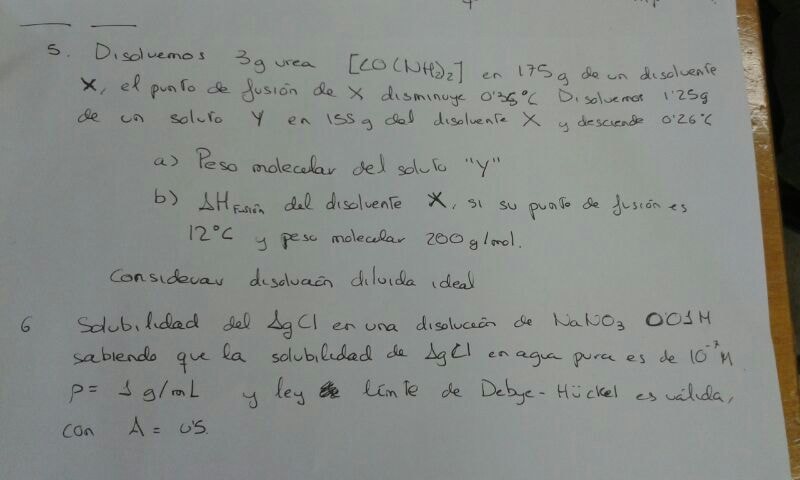 5. Disolvemos 3g urea [CO(NH₂)₂] en 175g de un disolvente
X, el punto de fusión de X disminuye 0'36°C Disolvemos 1'25g
de un soluto Y en 155g del disolvente X y desciende 0'26°C
a) Peso molecular del soluto "Y"
b) ΔH Fusión del disolvente X, si su punto de fusión es
12°C y peso molecular 200g/mol.
Considerar disolución diluida ideal
6 Solubilidad del AgCl en una disolución de NaNO₃ 0'01M
sabiendo que la solubilidad de AgCl en agua pura es de 10⁻⁷M
ρ= 1 g/mL y ley límite de Debye-Hückel es válida,
con A = 0'5.